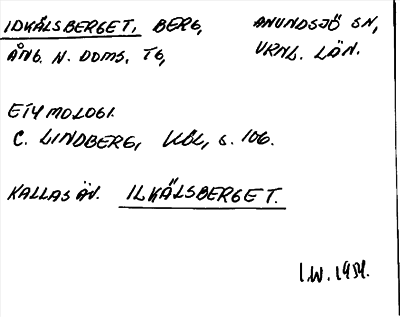 IDKÅLSBERGET, BERG, ANUNDSJÖ SN,
ÅNG. N. DOMS. TG, VRNL. LÄN.
ETYMOLOGI.
C. LINDBERG, s. 106.
KALLAS ÄV. ILKÅLSBERGET.
I.W. 1954.